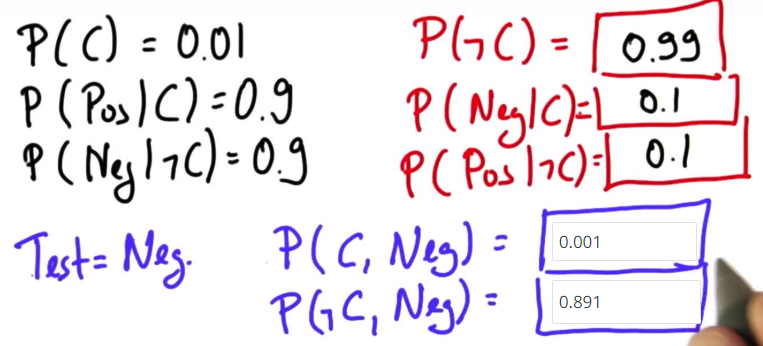 P(C) = 0.01
P(¬C) = 0.99
P(Pos|C) = 0.9
P(Neg|C) = 0.1
P(Neg|¬C) = 0.9
P(Pos|¬C) = 0.1
Test = Neg.
P(C, Neg) = 0.001
P(¬C, Neg) = 0.891